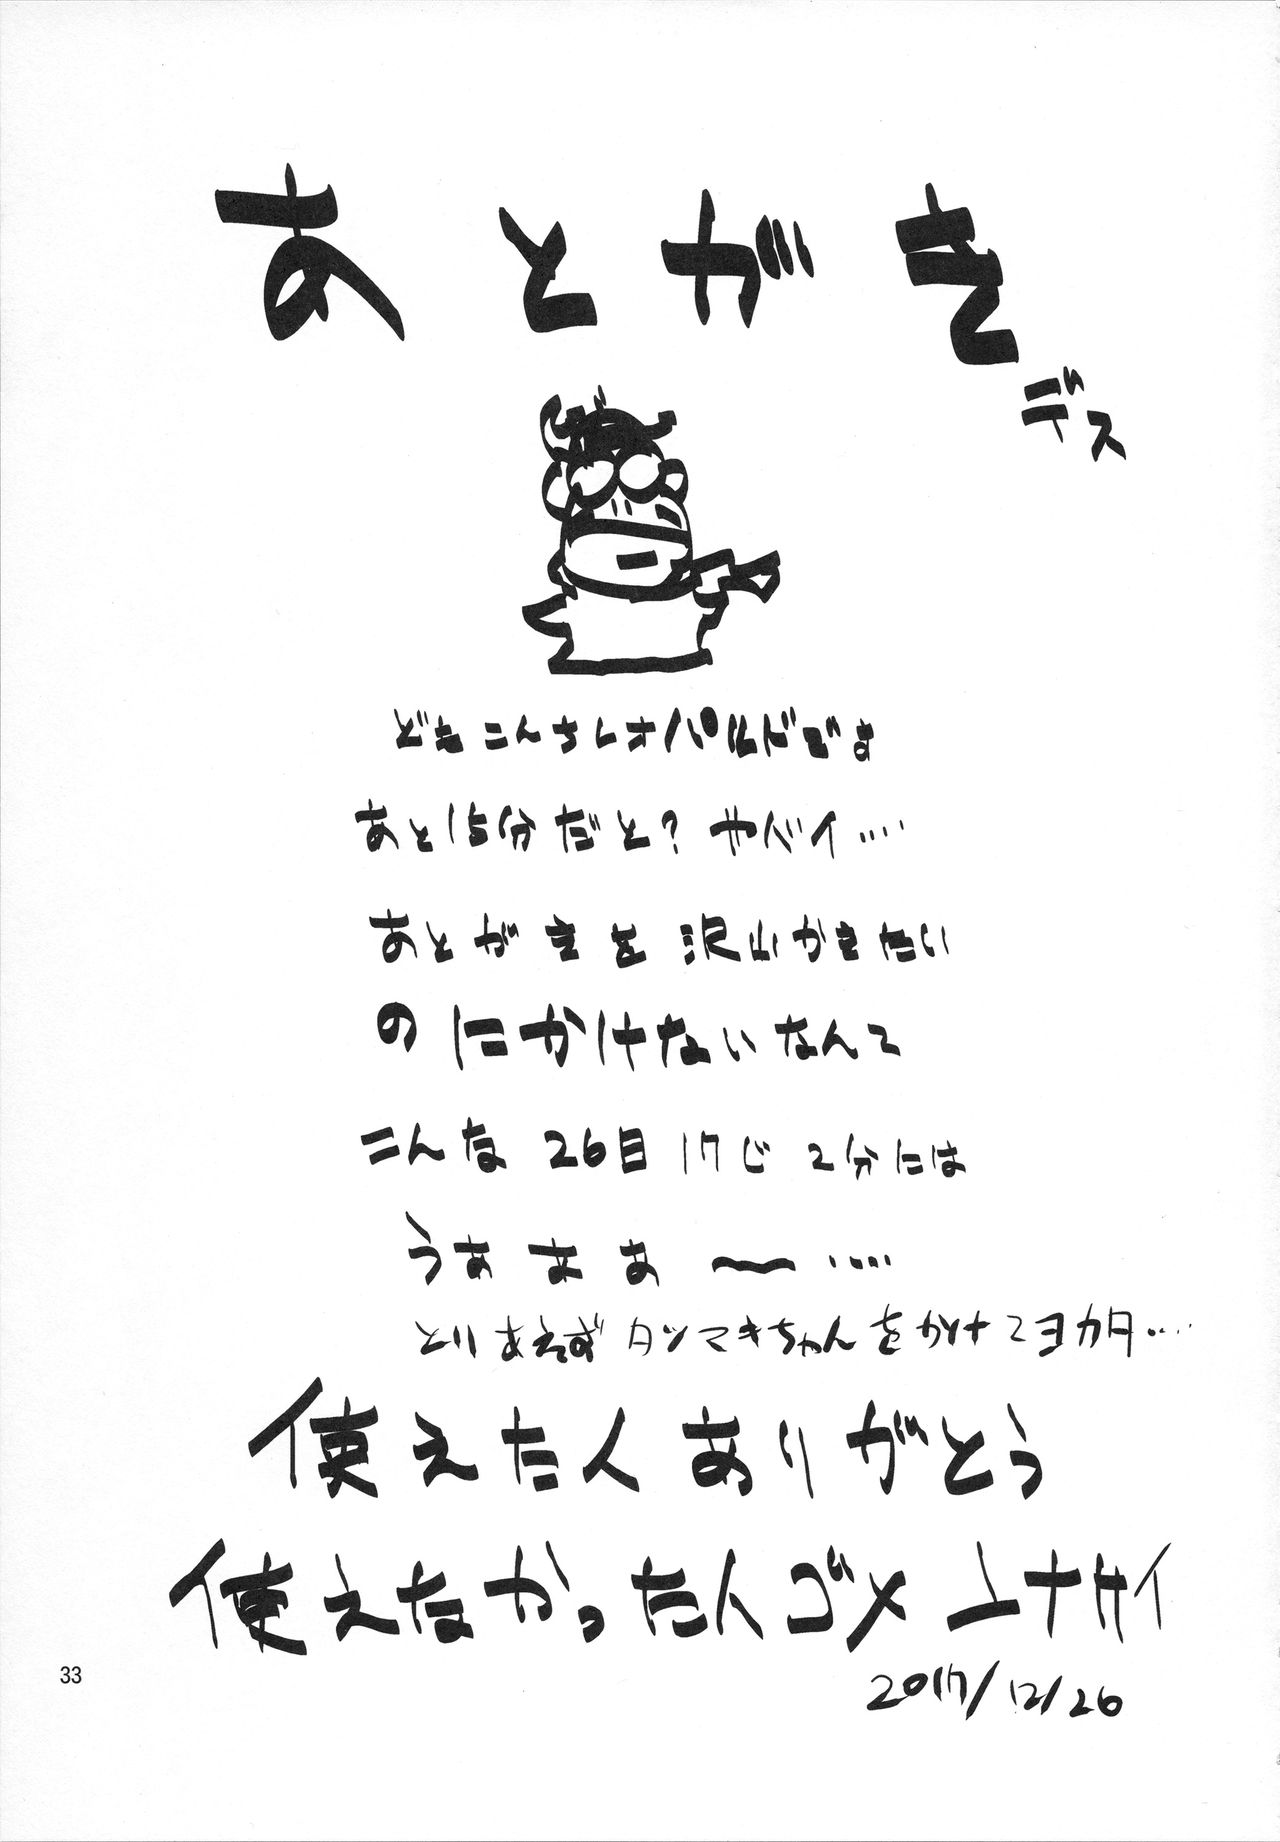 あとがき
デス
どもこんちレオパルドでよ
あと15分だと?ヤバイ‥‥
あとがきを沢山かきたい
のにかけないなんて
こんな 26日 17じ 2分には
うああぁ〜‥‥
とりあえずタツマキちゃんをかけてヨカタ‥‥
使えた人ありがとう
使えなかった人ゴメンナサイ
2017/12/26
33